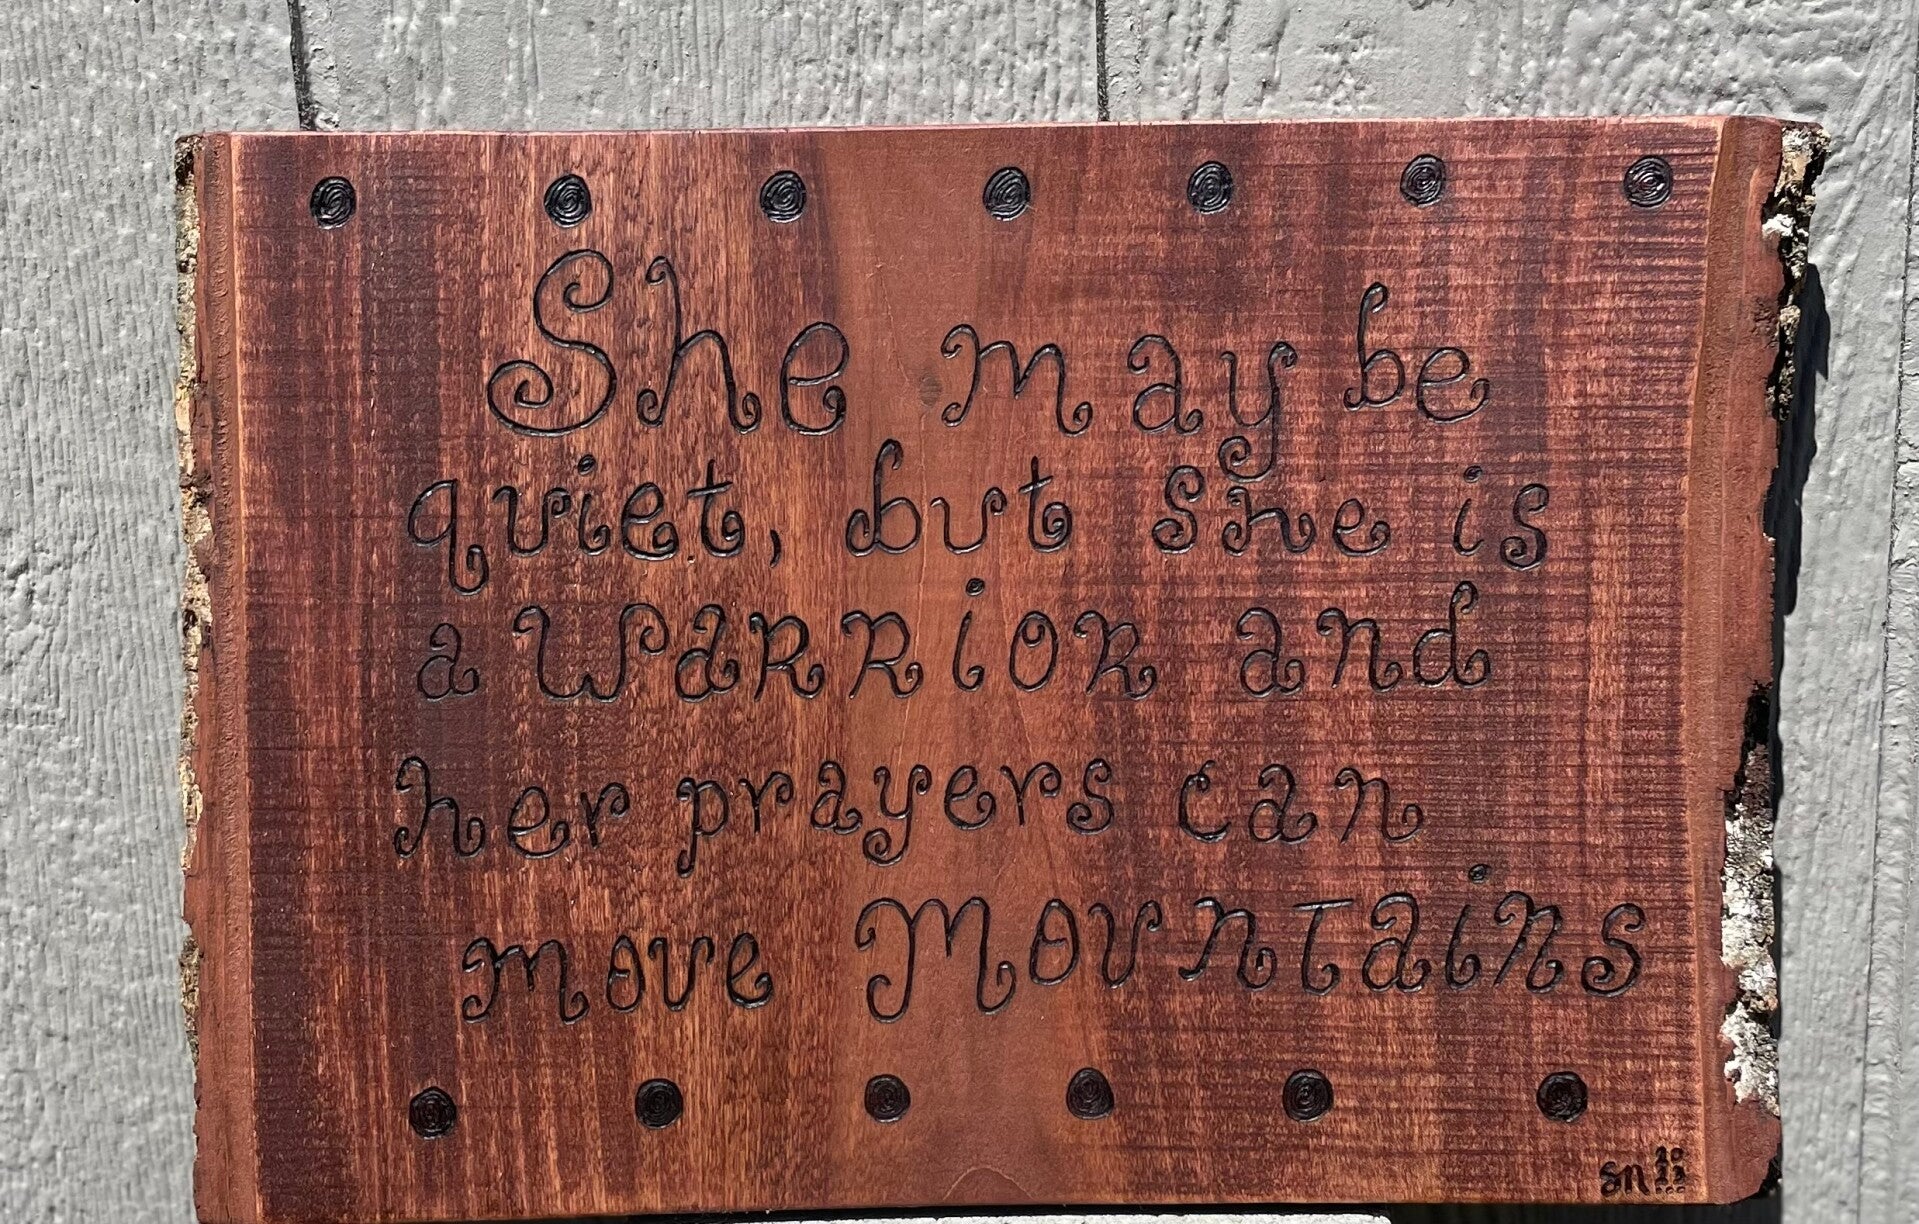 She may be
quiet, but she is
a warrior and
her prayers can
move Mountains
SN